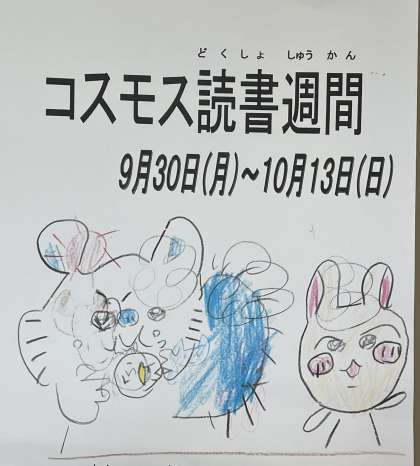 どくしょ しゅうかん
コスモス読書週間
9月30日(月)~10月13日(日)